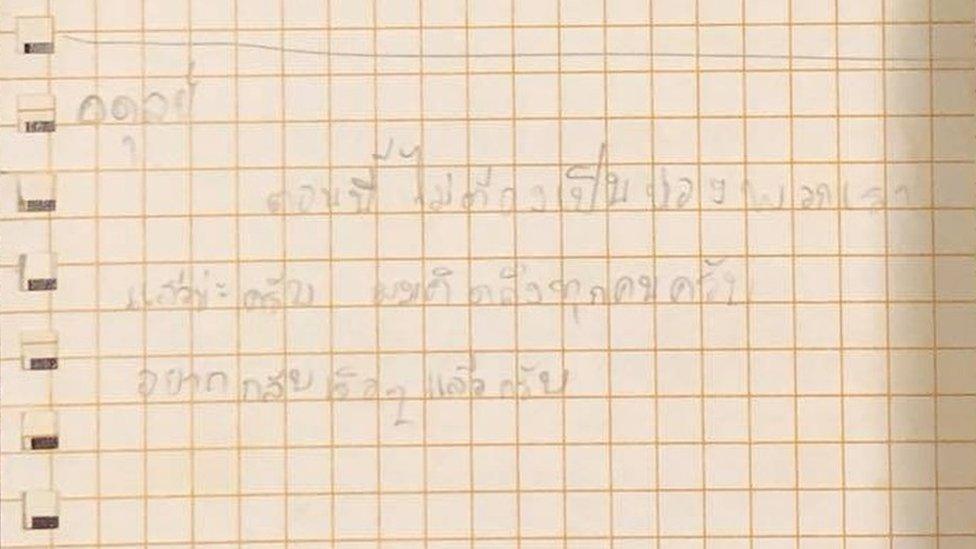 อดุลย์
ตอนนี้ ไม่ต้องเป็นห่วง พวกเรา
แล้วนะครับ ผมคิดถึงทุกคนครับ
อยากกลับเร็วๆแล้วครับ